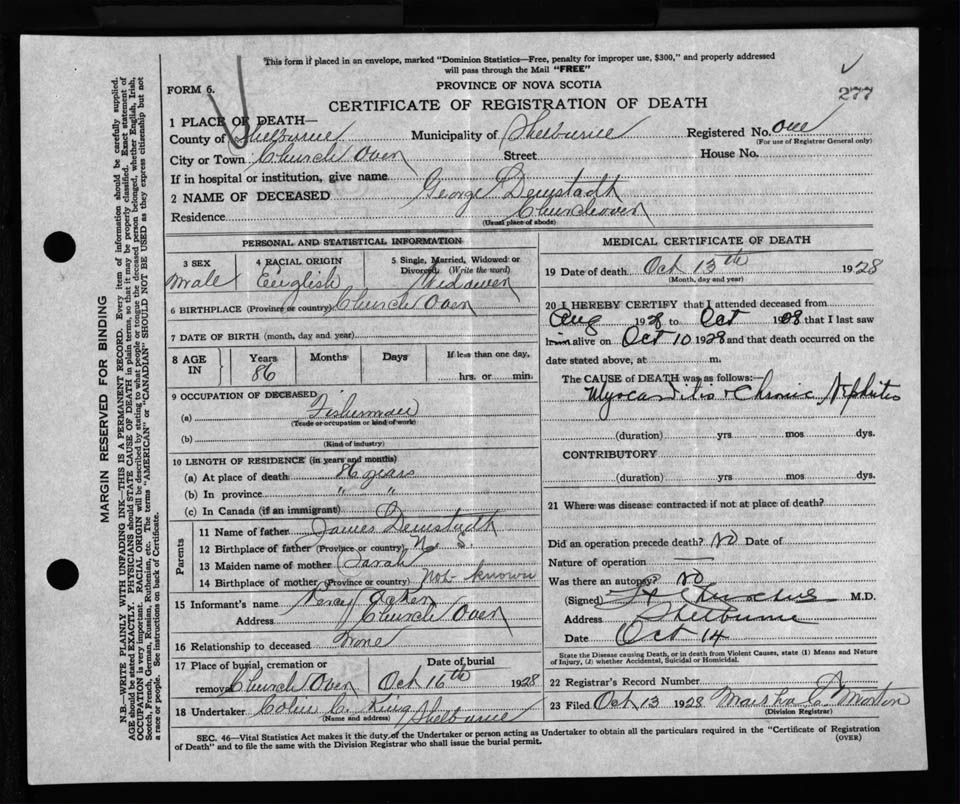 This form if placed in an envelope, marked "Dominion Statistics—Free, penalty for improper use, $300," and properly addressed
will pass through the Mail "FREE"
FORM 6.
PROVINCE OF NOVA SCOTIA
277
CERTIFICATE OF REGISTRATION OF DEATH
1 PLACE OF DEATH—
County of Shelburne Municipality of Shelburne Registered No. One
(For use of Registrar General only)
City or Town Church Over Street House No.
If in hospital or institution, give name
2 NAME OF DECEASED George Demstadt
Residence Churchover
(Usual place of abode)
PERSONAL AND STATISTICAL INFORMATION
3 SEX 4 RACIAL ORIGIN 5 Single, Married, Widowed or
Divorced. (Write the word)
Male English Widower
6 BIRTHPLACE (Province or country) Church Over
7 DATE OF BIRTH (month, day and year)
8 AGE IN Years Months Days If less than one day,
86 hrs. or min.
9 OCCUPATION OF DECEASED
(a) Fisherman
(Trade or occupation or kind of work)
(b)
(Kind of industry)
10 LENGTH OF RESIDENCE (in years and months)
(a) At place of death 86 years
(b) In province " "
(c) In Canada (if an immigrant)
Parents
11 Name of father James Demstadt
12 Birthplace of father (Province or country) N. S.
13 Maiden name of mother Sarah
14 Birthplace of mother (Province or country) Not known
15 Informant's name Percy Acker
Address Church Over
16 Relationship to deceased None
17 Place of burial, cremation or Date of burial
removal Church Over Oct 16th 1928
18 Undertaker Colin C. King Shelburne
(Name and address)
MEDICAL CERTIFICATE OF DEATH
19 Date of death Oct 13th 1928
(Month, day and year)
20 I HEREBY CERTIFY that I attended deceased from
Aug 1928 to Oct 1928 that I last saw
him alive on Oct 10 1928 and that death occurred on the
date stated above, at m.
The CAUSE of DEATH was as follows:—
Myocarditis + Chronic Nephritis
(duration) yrs mos dys.
CONTRIBUTORY
(duration) yrs mos dys.
21 Where was disease contracted if not at place of death?
Did an operation precede death? No Date of
Nature of operation —
Was there an autopsy? No
(Signed) M.D.
Address Shelburne
Date Oct 14
State the Disease causing Death, or in death from Violent Causes, state (1) Means and Nature
of Injury, (2) whether Accidental, Suicidal or Homicidal.
22 Registrar's Record Number
23 Filed Oct 13 1928 Morton
(Division Registrar)
SEC. 46—Vital Statistics Act makes it the duty of the Undertaker or person acting as Undertaker to obtain all the particulars required in the "Certificate of Registration
of Death" and to file the same with the Division Registrar who shall issue the burial permit.
(OVER)
MARGIN RESERVED FOR BINDING
N.B.—WRITE PLAINLY WITH UNFADING INK—THIS IS A PERMANENT RECORD. Every item of information should be carefully supplied.
AGE should be stated EXACTLY. PHYSICIANS should STATE CAUSE OF DEATH in plain terms, so that it may be properly classified. Exact statement of
OCCUPATION is very important. RACIAL ORIGIN will be described by stating to what people or tongue the deceased person belonged, whether English, Irish,
Scotch, French, German, Russian, Ruthenian, etc. The terms "AMERICAN" or "CANADIAN" SHOULD NOT BE USED as they express citizenship but not
a race or people. See instructions on back of Certificate.